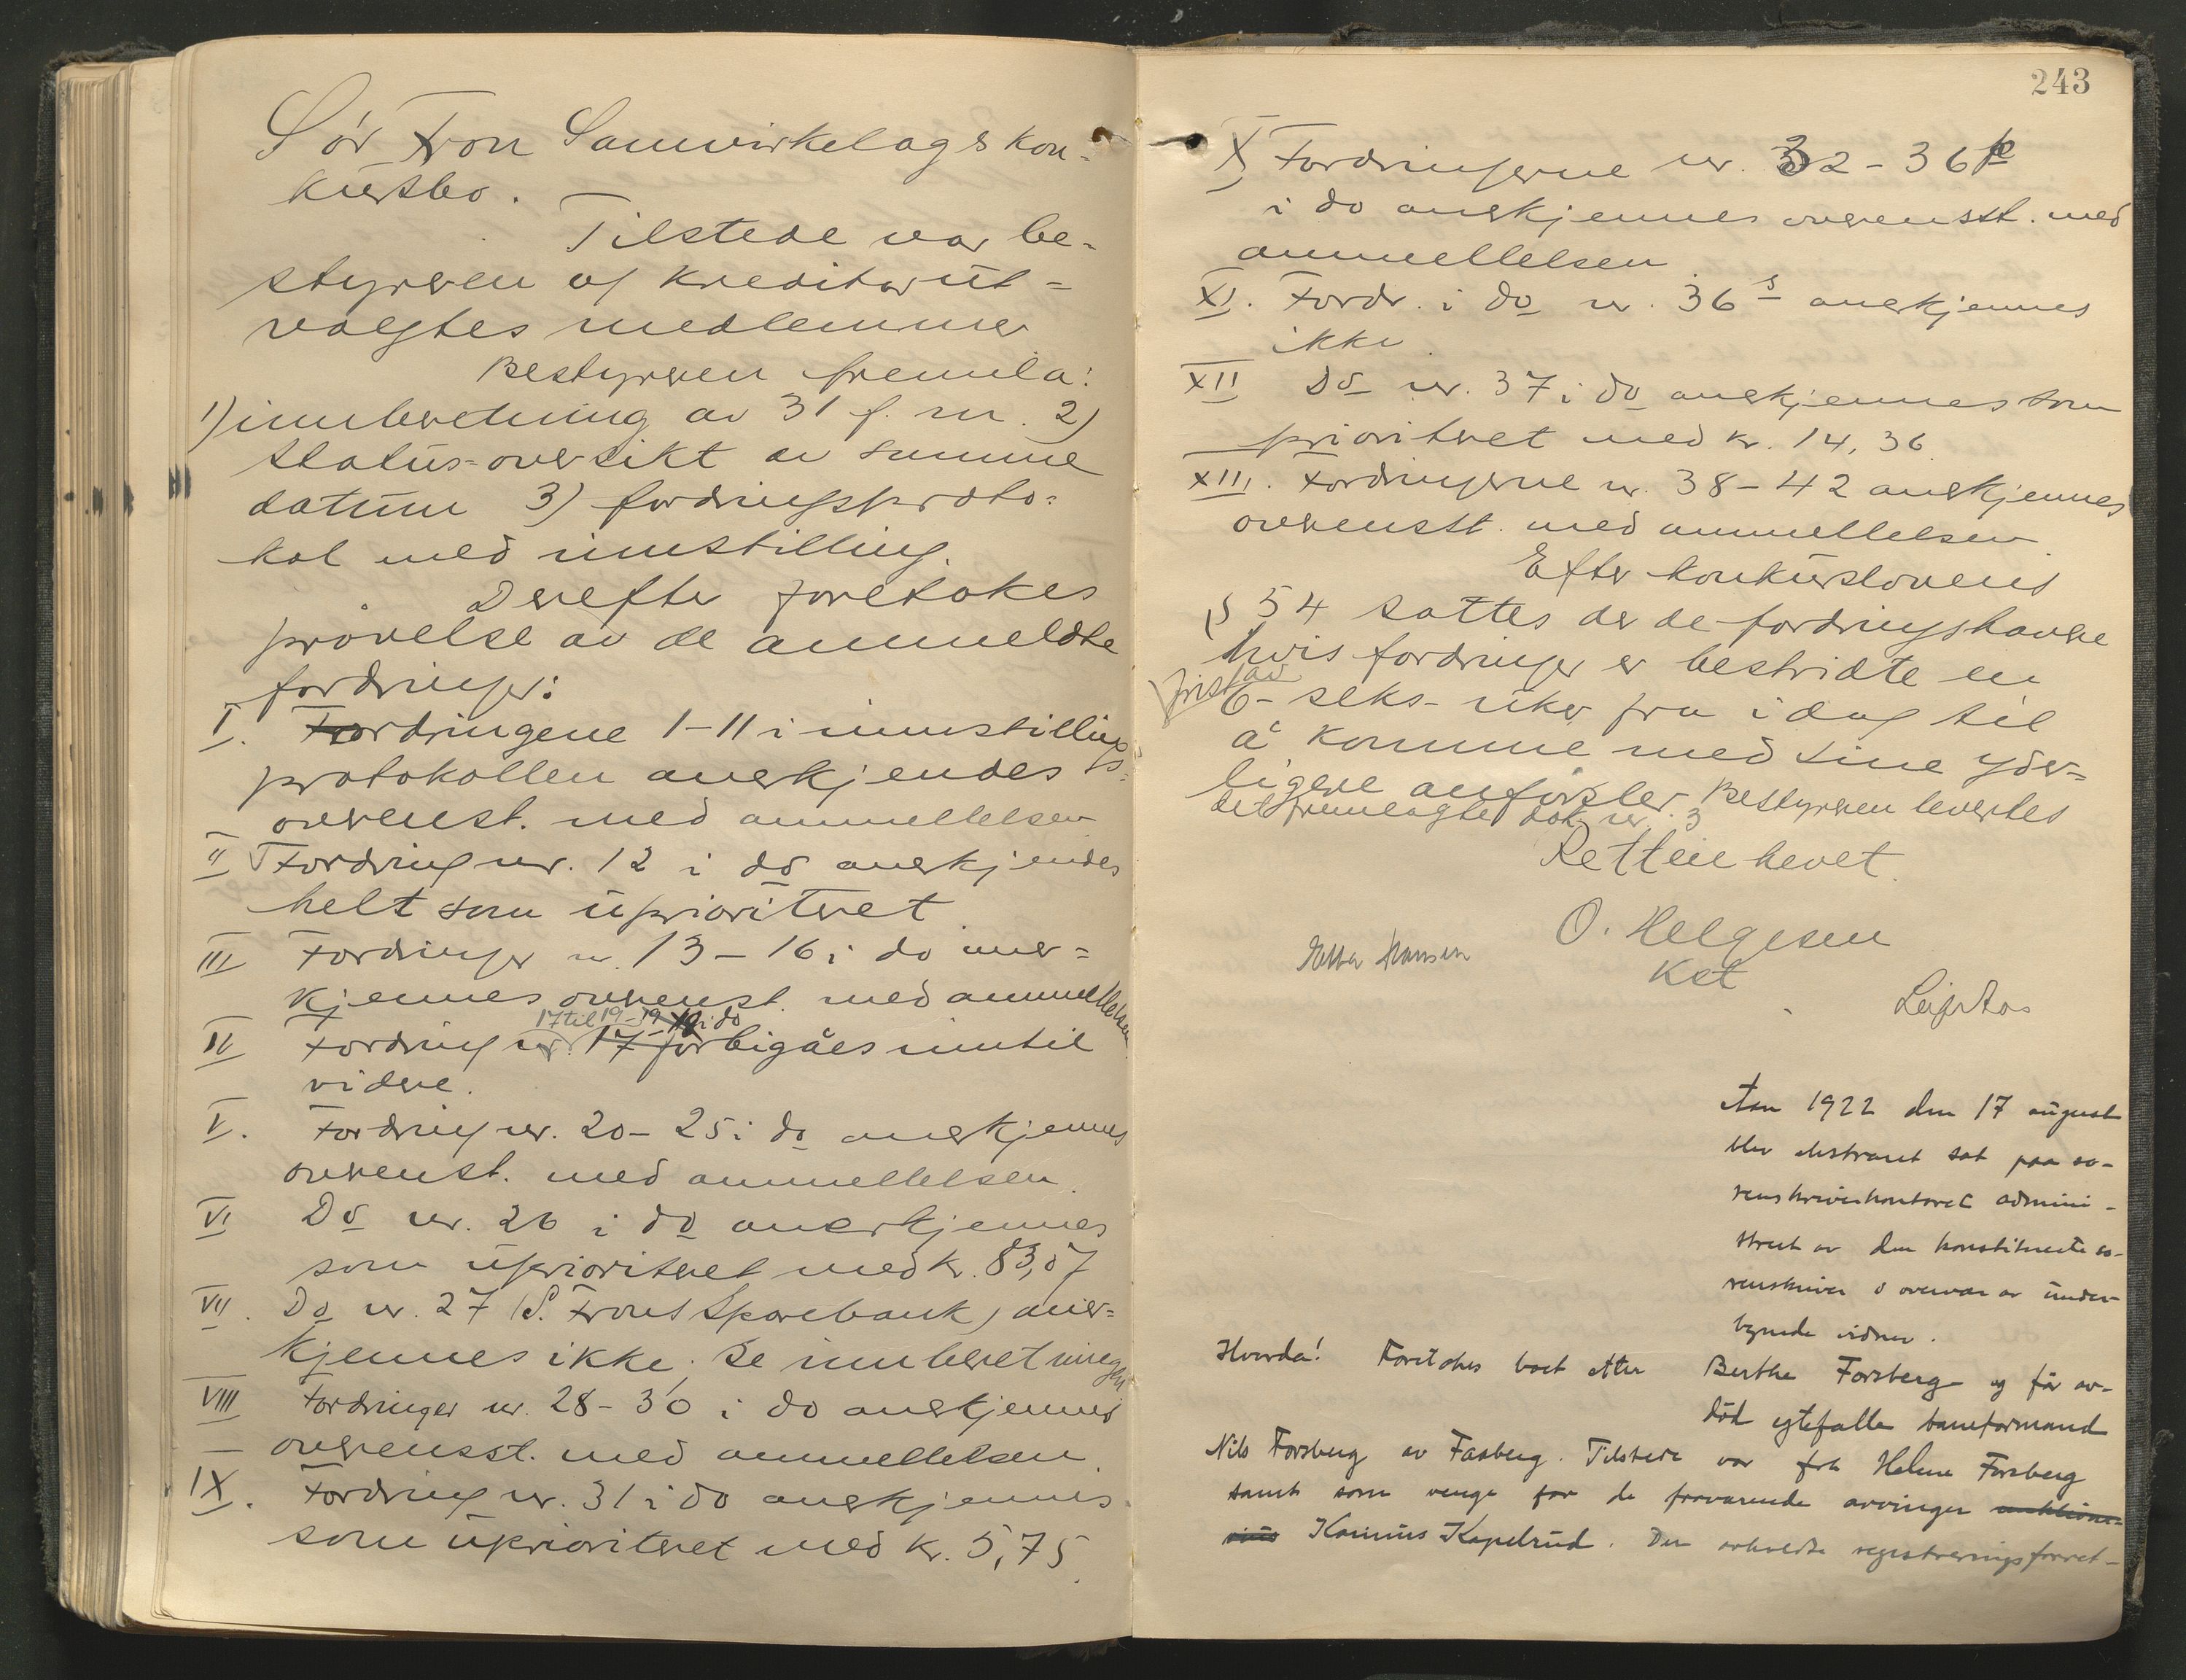 Sør Fron Samvirkelags kon-
kursbo.
Tilstede var be-
styreren og kreditorut-
valgtes medlemmer
Bestyreren fremla:
1) innberetning av 31 f. m. 2)
status-oversikt av samme
datum 3) fordringsproto-
kol med innstilling.
Derefter foretokes
prøvelse av de anmeldte
fordringer:
I. Fordringene 1-11 i innstillings-
protokollen anerkjendes
overenst. med anmeldelsen
II Fordring nr. 12 i do anerkjendes
helt som uprioritert
III Fordringer nr. 13-16 i do aner-
kjennes overenst. med anmeldelsen
17 til 19 i do
IV Fordring nr. 17 forbigåes inntil
videre.
V. Fordring nr. 20-25 i do anerkjennes
overenst. med anmeldelsen.
VI Do nr. 26 i do anerkjennes
som uprioritert med kr. 83,07
VII. Do nr. 27 (S. Frons Sparebank) aner-
kjennes ikke. Se innberetningen
VIII Fordringer nr. 28-30 i do anerkjennes
overensst. med anmeldelsen.
IX. Fordring nr. 31 i do anerkjennes
som uprioritert med kr. 5,75.
243
X, Fordringerne nr. 32-36
i do anerkjennes overensst. med
anmeldelsen.
XI. Fordr. i do nr. 36 s anerkjennes
ikke.
XII Do nr. 37 i do anerkjennes som
prioritert med kr. 14,36.
XIII. Fordringerne nr. 38-42 anerkjennes
overensst. med anmeldelsen.
Efter konkurslovens
§ 54 sattes der de fordringshavere
hvis fordringer er bestridte en
frist av
6- seks- uker fra idag til
å komme med sine yder-
ligere anførsler. Bestyreren levertes
det fremlagte dok. nr. 3
Retten hevet.
O. Helgesen
Kst
Hansen
Aar 1922 den 17 august
blev ekstraret sat paa so-
renskriverkontoret admini-
strert av den konstituerte so-
renskriver i overvær av under-
tegnede vidner.
Hvorda! Foretokes boet etter Berthe Forsberg og før av-
død egtefælle baneformand
Nils Forsberg av Faaberg. Tilstede var frk Helene Forsberg
samt som verge for de fraværende arvinger
Kapelrud. Den avholdte registreringsforret-